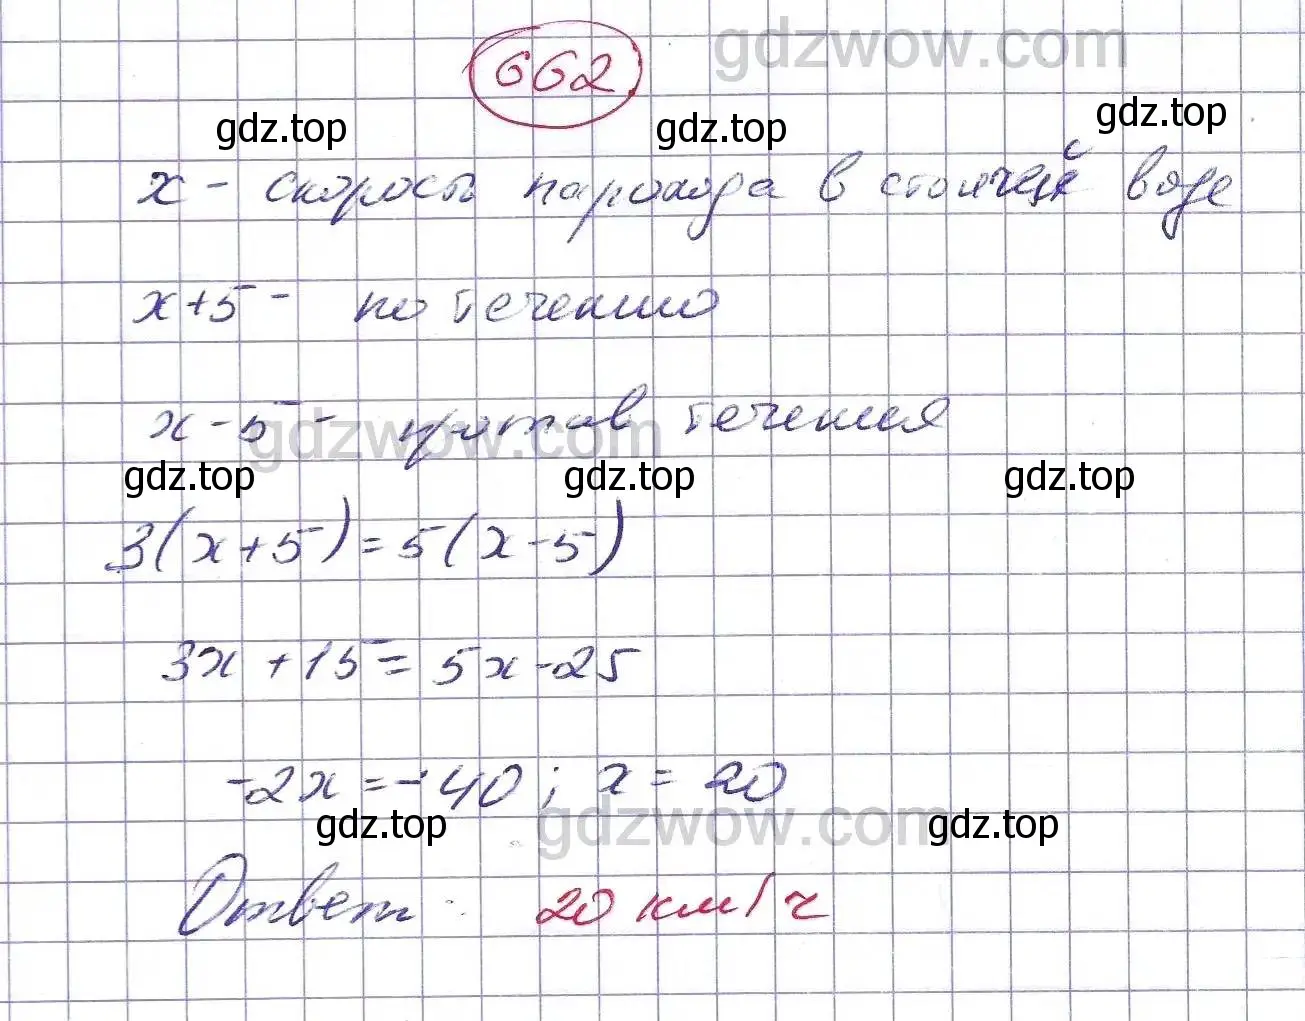 gdzwow.com
662
gdz.top gdz.top gdz.top
x - скорость парохода в стоячей воде
x+5 - по течению
x-5 - против течения
gdzwow.com
gdz.top gdz.top gdz.top
3(x+5)=5(x-5)
3x+15=5x-25
-2x=-40; x=20
gdz.top gdzwow.com gdz.top
Ответ: 20 км/ч